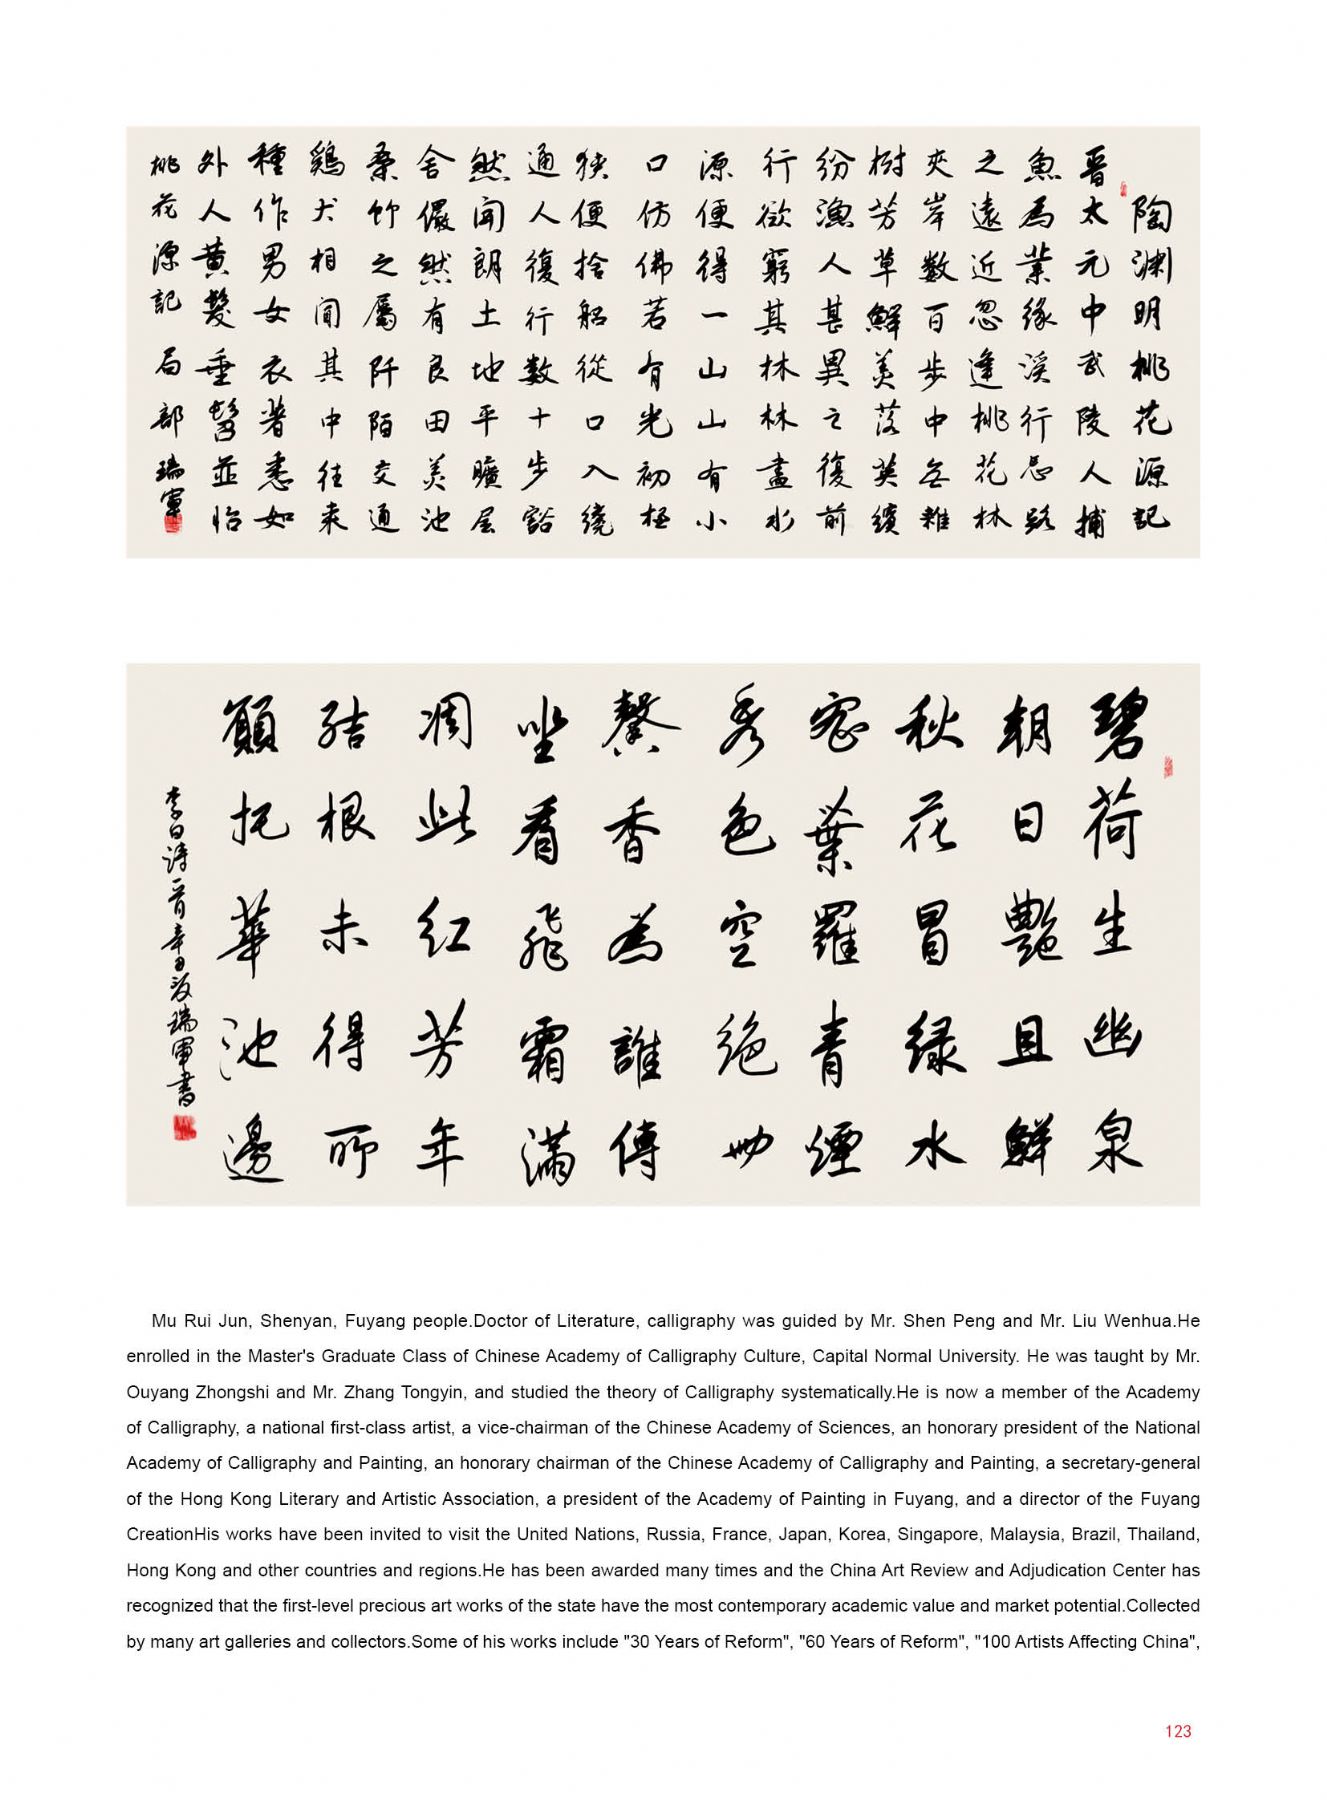 陶渊明桃花源記
晋太元中武陵人捕
魚為業缘溪行忘路
之遠近忽逢桃花林
夾岸数百步中无雜
樹芳草鮮美落英繽
纷漁人甚異之復前
行欲窮其林林盡水
源便得一山山有小
口仿佛若有光初極
狭便捨船從口入繞
通人復行数十步豁
然開朗土地平曠屋
舍儼然有良田美池
桑竹之屬阡陌交通
鷄犬相聞其中往来
種作男女衣著悉如
外人黄髮垂髫並怡
桃花源記 局部 瑞軍
碧荷生幽泉
朝日艷且鮮
秋花冒绿水
密葉羅青煙
秀色空绝世
馨香為誰傳
坐看飛霜满
凋此红芳年
结根未得所
願托華池邊
李白诗一首辛丑夏瑞軍书
Mu Rui Jun, Shenyan, Fuyang people.Doctor of Literature, calligraphy was guided by Mr. Shen Peng and Mr. Liu Wenhua.He
enrolled in the Master's Graduate Class of Chinese Academy of Calligraphy Culture, Capital Normal University. He was taught by Mr.
Ouyang Zhongshi and Mr. Zhang Tongyin, and studied the theory of Calligraphy systematically.He is now a member of the Academy
of Calligraphy, a national first-class artist, a vice-chairman of the Chinese Academy of Sciences, an honorary president of the National
Academy of Calligraphy and Painting, an honorary chairman of the Chinese Academy of Calligraphy and Painting, a secretary-general
of the Hong Kong Literary and Artistic Association, a president of the Academy of Painting in Fuyang, and a director of the Fuyang
CreationHis works have been invited to visit the United Nations, Russia, France, Japan, Korea, Singapore, Malaysia, Brazil, Thailand,
Hong Kong and other countries and regions.He has been awarded many times and the China Art Review and Adjudication Center has
recognized that the first-level precious art works of the state have the most contemporary academic value and market potential.Collected
by many art galleries and collectors.Some of his works include "30 Years of Reform", "60 Years of Reform", "100 Artists Affecting China",
123